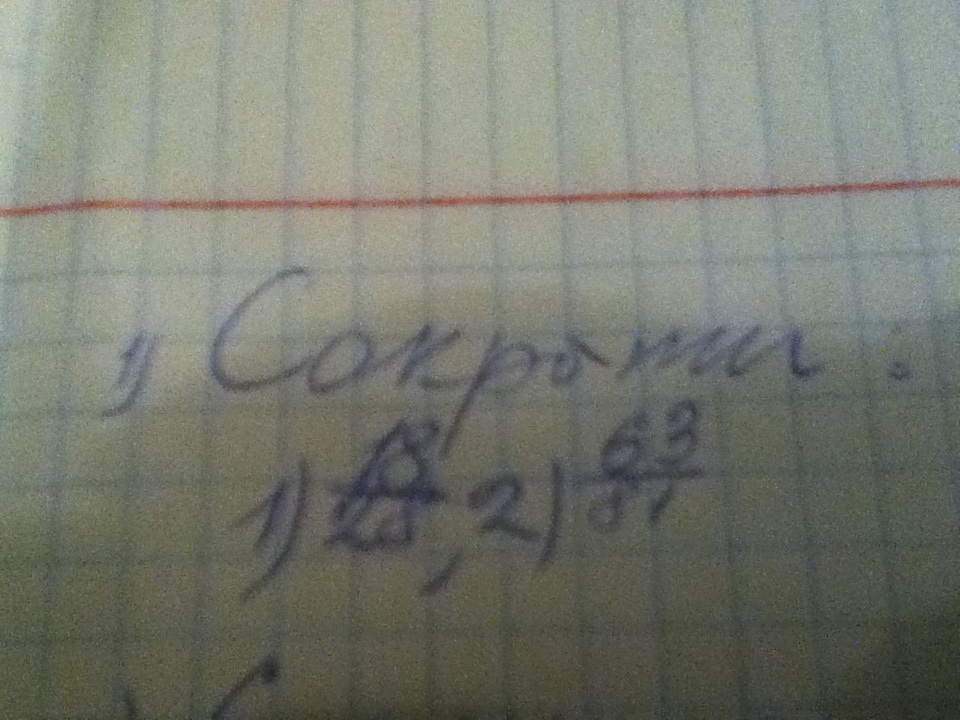 1) Сократи.
1) 18/28, 2) 63/81